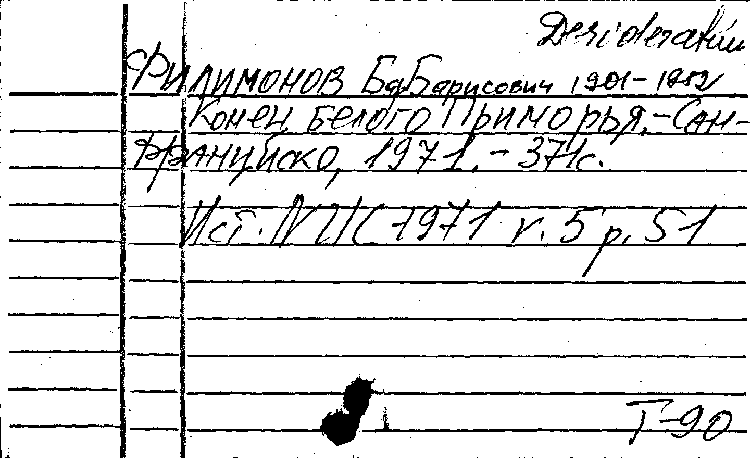 Desideratum
Филимонов Б. Борисович 1901-1952
Конец Белого Приморья.-Сан-
Франциско, 1971.-371с.
Ист. NUC 1971 v. 5 p. 51
Т-90